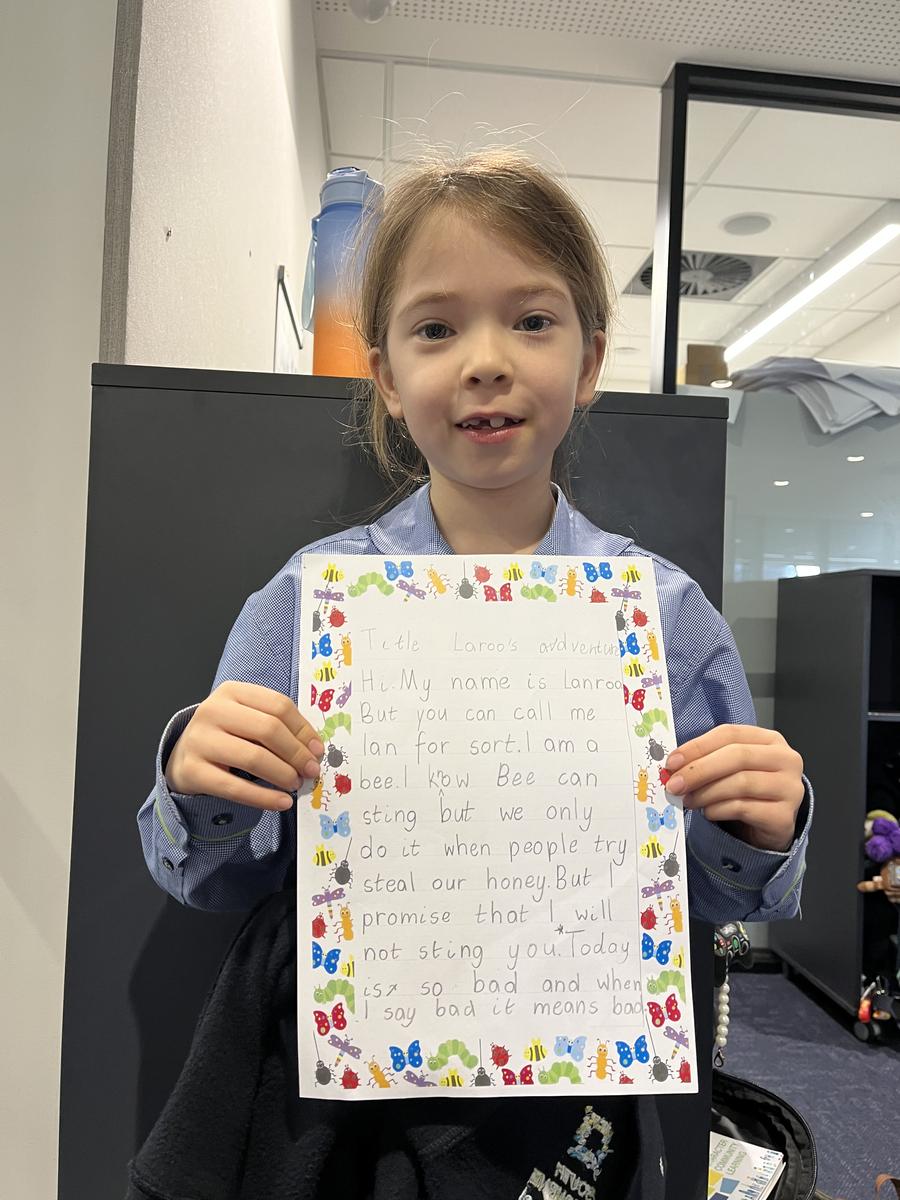 Title Laroo's avdventur
Hi. My name is Lanroo
But you can call me
lan for sort. I am a
bee. I know Bee can
sting but we only
do it when people try
steal our honey. But I
promise that I will
not sting you. Today
is so bad and when
I say bad it means bad
CHARACTER
COMMUNITY
LEARNING